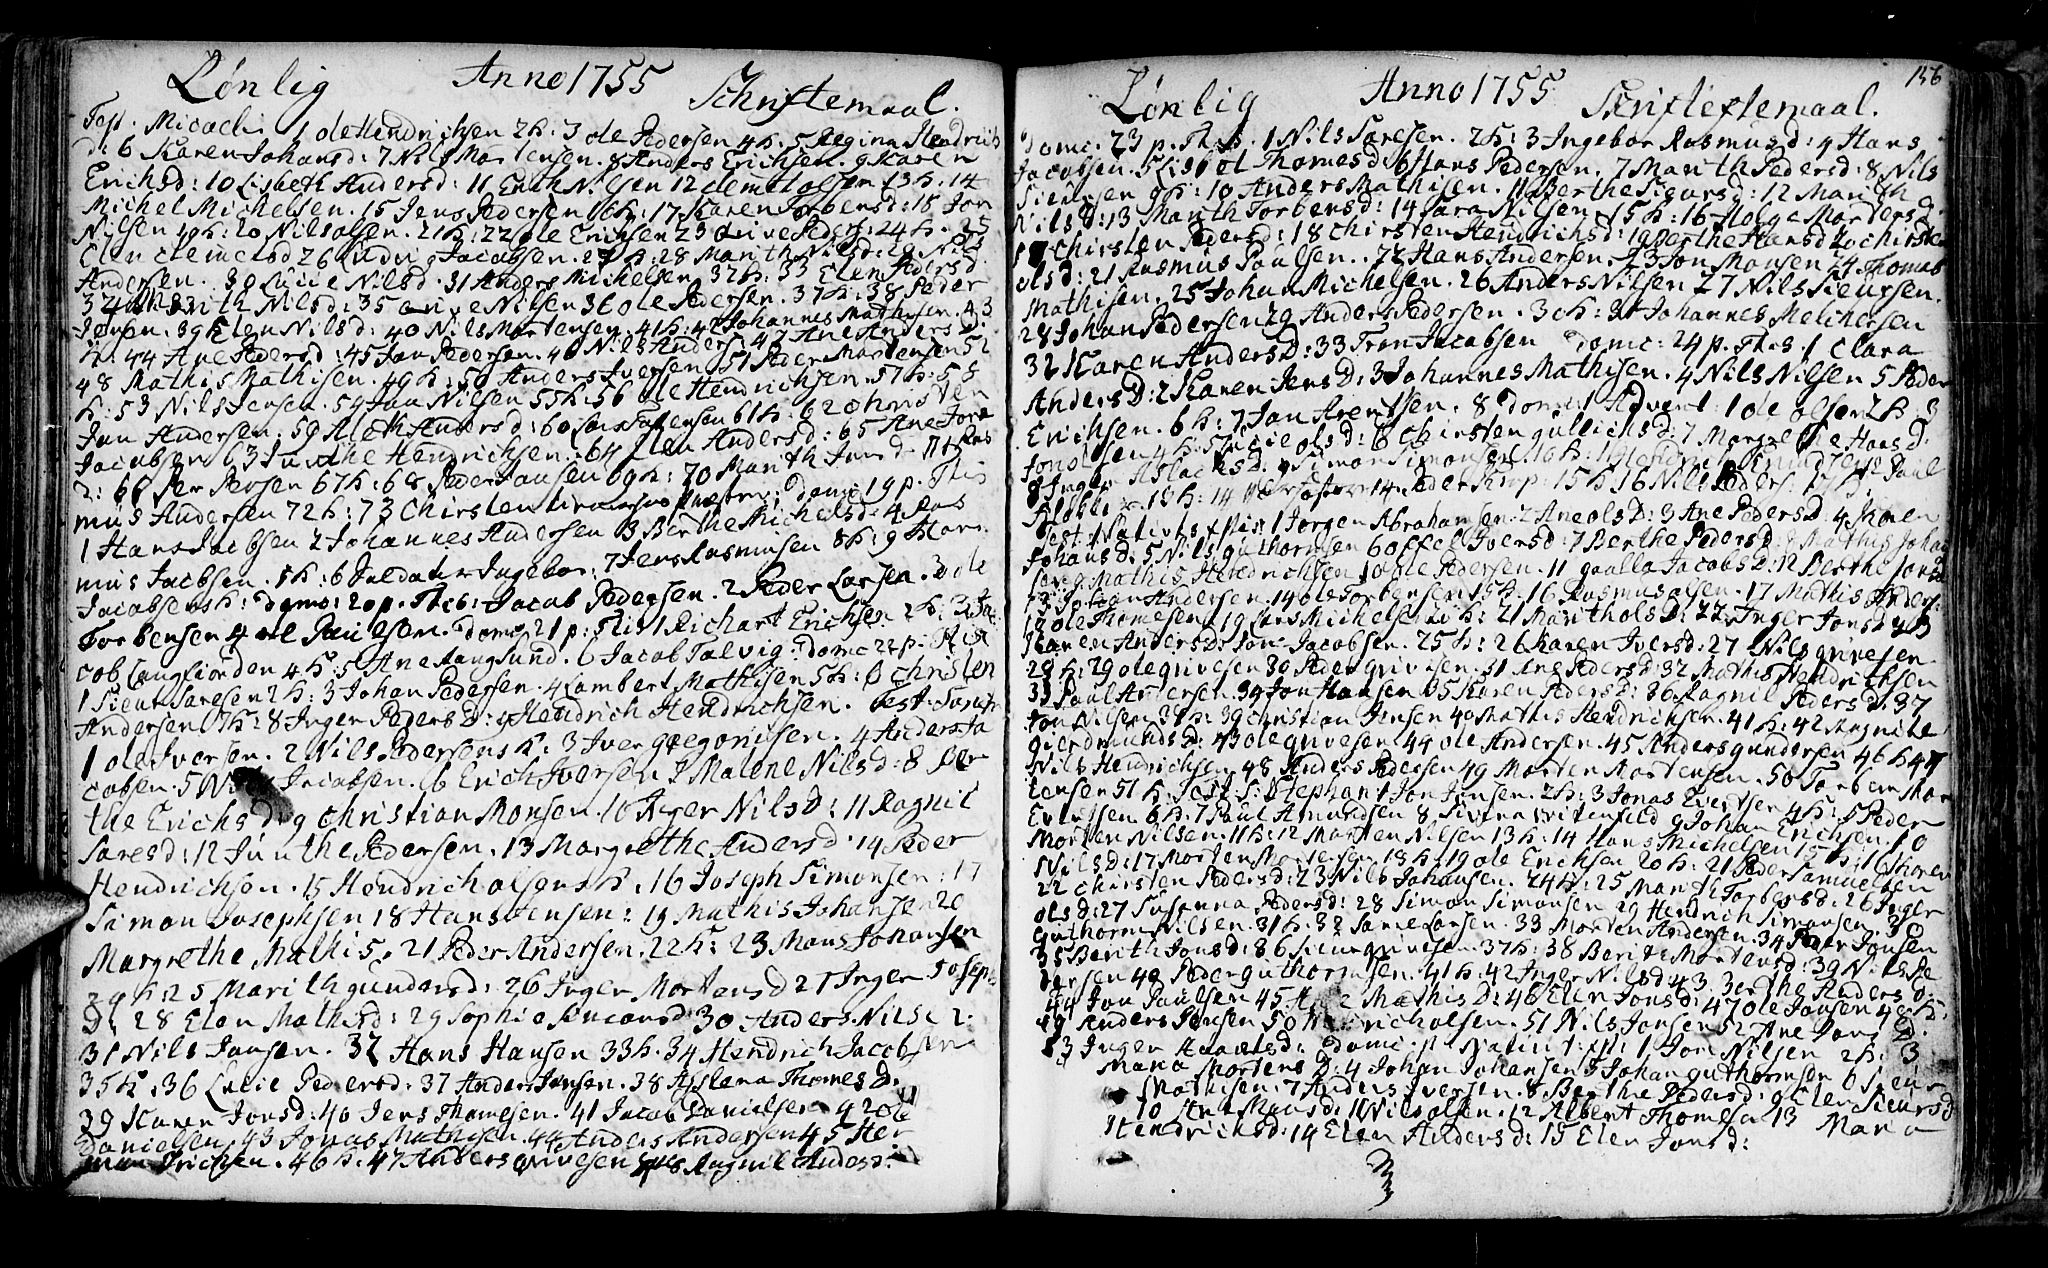 Lønlig Anno 1755 Schriftemaal.
Fest. Micaeli 1 ole Hendrichsen 2 h: 3 ole Pedersen 4 h. 5 Regina Hendrich
d: 6 Karen Johansd: 7 Nils Mortensen. 8 Anders Erichsen. 9 Karen
Erichsd: 10 Lisbeth Andersd: 11 Erich Nilsen 12 clemet olsen 13 h: 14
Michel Michelsen. 15 Jens Pedersen 16 h: 17 Karen Torbensd: 18 Jon
Nilsen 19 h: 20 Nils olsen. 21 h: 22 ole Erichsen 23 Pedersd: 24 h. 25
Elen clemetsd 26 Ludvig Jacobsen. 27 h: 28 Marith Nilsd: 29 Nils
Andersen. 30 Lucie Nilsd. 31 Anders Michelsen 32 h: 33 Elen Pedersd
34 Marith Nilsd: 35 Nilsen 36 ole Pedersen. 37 h: 38 Peder
Jensen. 39 Elen Nilsd: 40 Nils Mortensen. 41 h: 42 Johannes Mathisen. 43
h: 44 Ane Pedersd: 45 Jon Pedersen. 46 Nils Anders: 47 Ane Andersd:
48 Mathis Mathisen. 49 h: 50 Anders Iversen 51 Peder Mortensen 52
h: 53 Nils Iversen. 54 Jon Nilsen 55 h: 56 ole Hendrichsen. 57 h: 58
Jon Andersen. 59 Aleth Andersd: 60 Lars 61 h: 62
Jacobsen 63 Hendrichsen. 64 Elen Andersd: 65 Ane Jons
d: 66 Per Persen 67 h: 68 Peder Paulsen 69 h: 70 Marith Jonsd: 71 Ras
mus Andersen 72 h: 73 Chirsten domc 19 p. This
1 Hans Jacobsen 2 Johannes Andersen 3 Berthe Michelsd: 4 Ras
mus Jacobsen. 5 h: 6 Soldater Ingebor: 7 Jens Rasmusen 8 h: 9 Hans
Jacobsen h: domc: 20 p. This: Jacob Pedersen. 2 Peder Larsen. 3 ole
Torbensen 4 ole Paulsen. domc 21 p: This 1 Richart Erichsen 2 h: 3 Ja
cob Langfiorden 4 h: 5 Ane Langsund. 6 Jacob Talvig: domc 22 p. This
1 Sieur Saresen 2 h: 3 Johan Pedersen. 4 Lambert Mathisen 5 h: 6 christen
Andersen 7 h: 8 Inger Pedersd: 9 Hendrich Hendrichsen. Fest:
1 ole Iversen. 2 Nils Pedersen h: 3 Iver gregoriusen. 4 Anders Ja
cobsen. 5 Jacobsen. 6 Erich Iversen 7 Malene Nilsd: 8 Ber
the Erichsd: 9 christian Monsen. 10 Inger Nilsd: 11 Ragnil
Saresd: 12 Pedersen. 13 Margrethe Andersd. 14 Peder
Hendrichsen. 15 Hendrich olsen h. 16 Joseph Simonsen: 17
Simon Josephsen 18 Hans Jensen: 19 Mathis Johansen 20
Margrethe Mathis. 21 Peder Andersen. 22 h: 23 Mons Johansen
24 h: 25 Marith gundersd: 26 Inger Mortensd 27 Inger Joseph
d: 28 Elen Mathisd: 29 Sophie Simonsd 30 Anders Nilsen
31 Nils Jonsen. 32 Hans Hansen 33 h. 34 Hendrich Jacobsen
35 h: 36 Lucie Pedersd: 37 Anders Jonsen. 38 Thomesd.
39 Karen Jonsd: 40 Jens Thomesen. 41 Jacob Danielsen 42 ole
Danielsen. 43 Jonas Mathisen. 44 Anders Andersen 45 Her
man Erichsen. 46 h: 47 Anders qvivesen 48 Ragnil Andersd:
156
Lønlig Anno 1755 Skriftelemaal.
domc. 23 p. This. 1 Nils Saresen. 2 h: 3 Ingebor Rasmusd: 4 Hans
Jacobsen. 5 Lisbet Thomesd: 6 Hans Pedersen. 7 Marith Pedersd: 8 Nils
Sieursen 9 h: 10 Anders Mathisen. 11 Berthe Sieursd: 12 Marith
Nilsd: 13 Marith Torbensd: 14 Sara Nilsen. 15 h: 16 Helge Mortensd
17 Chirsten Pedersd: 18 Chirsten Hendrichsd: 19 Berthe Hansd 20 chirsten
olsd: 21 Rasmus Paulsen. 22 Hans Andersen. 23 Jon Monsen 24 Thomas
Mathisen. 25 Johan Michelsen. 26 Anders Nilsen 27 Nils Sieursen.
28 Johan Pedersen 29 Anders Pedersen. 30 h: 31 Johannes Melchersen
32 Karen Andersd: 33 Tron Jacobsen domc: 24 p. This. 1 Clara
Andersd: 2 Karen Jensd: 3 Johannes Mathisen. 4 Nils Nilsen 5 Peder
Erichsen. 6 h: 7 Jan Arentsen. 8 domc: 1 Advent: 1 ole olsen 2 h. 3
Jon olsen 4 h: 5 Lucie olsd: 6 Chirsten gullichsd: 7 Margrethe Hansd:
8 Inger Aslachsd. 9 Simon Simonsen 10 h: 11 Hendrich 12 Paul
Klokker. 13 h: 14 Peder Krop: 15 h 16 Nils Peders: 17 h:
Fest: Nativits xsti: 1 Jørgen Abrahamsen. 2 Ane olsd: 3 Ane Pedersd: 4 Karen
Johansd: 5 Nils guthormsen 6 offel Iversd: 7 Berthe Pedersd 8 Mathis Johan
sen 9 Mathis Hendrichsen 10 ole Pedersen. 11 Jacobsd: 12 Berthe
13 Johan Andersen. 14 ole Torbensen 15 h. 16 Rasmus olsen. 17 Mathis Anders:
18 ole Thomesen 19 Lars Michelsen 20 h: 21 Marith olsd: 22 Inger Jonsd 23
Karen Andersd: Jon Jacobsen. 25 h: 26 Karen Iversd: 27 Nils qvivesen.
28 h: 29 ole qvivesen 30 Peder qvivesen. 31 Ane Pedersd: 32 Mathis Hendrichsen
33 Paul Andersen. 34 Jon Hansen 35 Karen Pedersd: 36 Ragnil Pedersd: 37
Jon Nilsen 38 h: 39 christian Jensen 40 Mathis Hendrichsen. 41 h: 42 Magnile
giermundsd: 43 ole qvivesen 44 ole Andersen. 45 Anders gundersen 46 h 47
Nils Hendrichsen. 48 Anders Pedersen 49 Morten Mortensen. 50 Torben Mor
tensen 51 h. Fest: S: Stephan 1 Jon Jensen. 2 h: 3 Jonas Evertsen 4 h: 5 Peder
Evertsen 6 h: 7 Paul Amundsen 8 9 Johan Erichsen. 10
Morten Nilsen. 11 h: 12 Morten Nilsen 13 h: 14 Hans Michelsen 15 h: 16 Karen
Nilsd: 17 Morten Mortensen 18 h: 19 ole Erichsen 20 h: 21 Peder Samuelsen
22 Chirsten Pedersd: 23 Nils Johansen. 24 h: 25 Marith Torbensd: 26 Inger
olsd: 27 Susanna Pedersd: 28 Simon Simonsen 29 Hendrich Simonsen. 30
guthorm Nilsen. 31 h: 32 Sare Larsen. 33 Morten Andersen. 34 Peder Jonsen
35 Berith Jonsd: 36 Sieur qvivesen. 37 h: 38 Berit Mortensd: 39 Nils Pe
dersen 40 Peder guthormsen. 41 h: 42 Inger Nilsd: 43 Berthe Andersd:
44 Jon Paulsen 45 Mathisd: 46 Elen Jonsd: 47 ole Jonsen 48
49 Anders Jensen 50 olsen. 51 Nils Jonsen 52 Ane Jonsd:
53 Inger domc: p: Nativit: xsti: 1 Jon Nilsen 2 h: 3
Maria Mortensd: 4 Johan Johansen 5 Johan guthormsen 6 Sieur
Mathisen. 7 Anders Iversen. 8 Berthe Pedersd: 9 Elen Sieursd
10 Ane Monsd: 11 Nils olsen. 12 Albert Thomesen 13 Maria
Hendrichsd: 14 Elen Andersd: 15 Elen Jonsd: